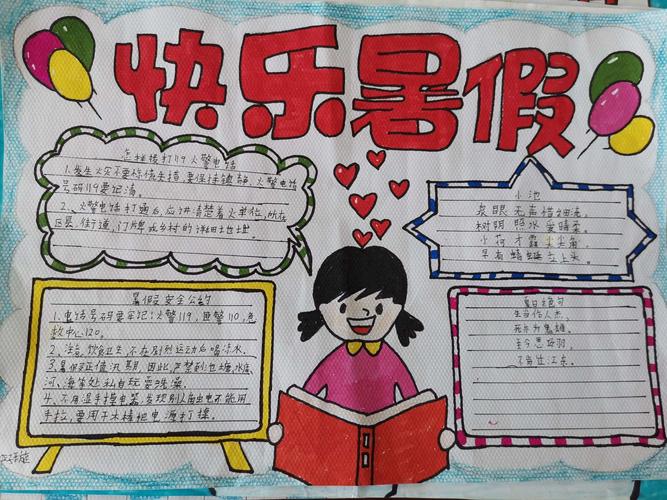 快乐暑假
怎样拨打119火警电话
1.发生火灾不要惊慌失措,要保持镇静,火警电话
号码119要记清。
2、火警电话打通后,应讲清楚着火单位,所在
区县、街道、门牌或乡村的详细地址。
小池
泉眼无声惜细流,
树阴照水爱晴柔。
小荷才露尖尖角,
早有蜻蜓立上头。
暑假安全公约
1.电话号码要牢记:火警119,匪警110,急
救中心120。
2、注意饮食卫生,不在剧烈运动后喝冷水。
3、暑假正值汛期,因此,严禁到池塘,水库、
河、海等处私自玩耍洗澡。
4、不用湿手摸电器,发现别人触电不能用
手拉,要用干木棒把电源打掉。
夏日绝句
生当作人杰,
死亦为鬼雄。
至今思项羽
不肯过江东。